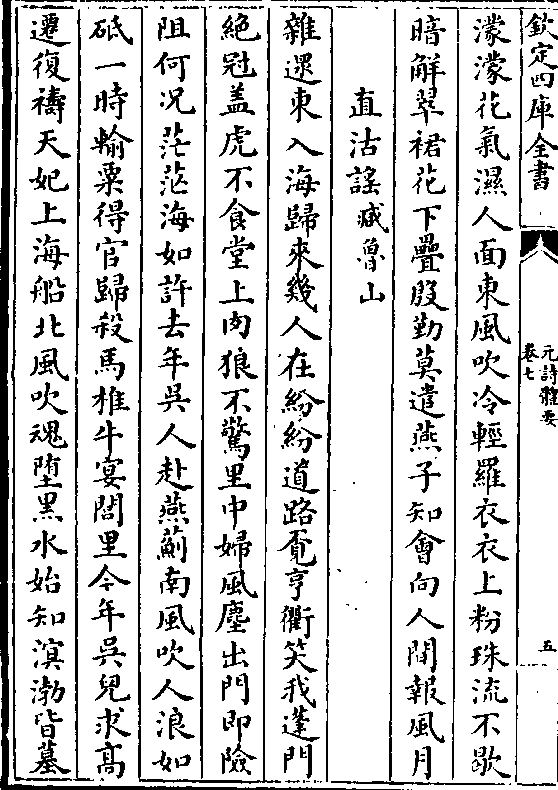 欽定四庫全書
元詩體要
卷七
五
濛濛花氣濕人面東風吹冷輕羅衣衣上粉珠流不歇
暗解翠裙花下疊殷勤莫遣燕子知會向人間報風月
直沽謠臧魯山
雜遝東入海歸來幾人在紛紛道路覓亨衢笑我蓬門
絶冠盖虎不食堂上肉狼不驚里中婦風塵出門即險
阻何况茫茫海如許去年吳人赴燕薊南風吹人浪如
砥一時輸粟得官歸殺馬椎牛宴閭里今年吳兒求髙
遷復禱天妃上海船北風吹魂墮黑水始知溟渤皆墓